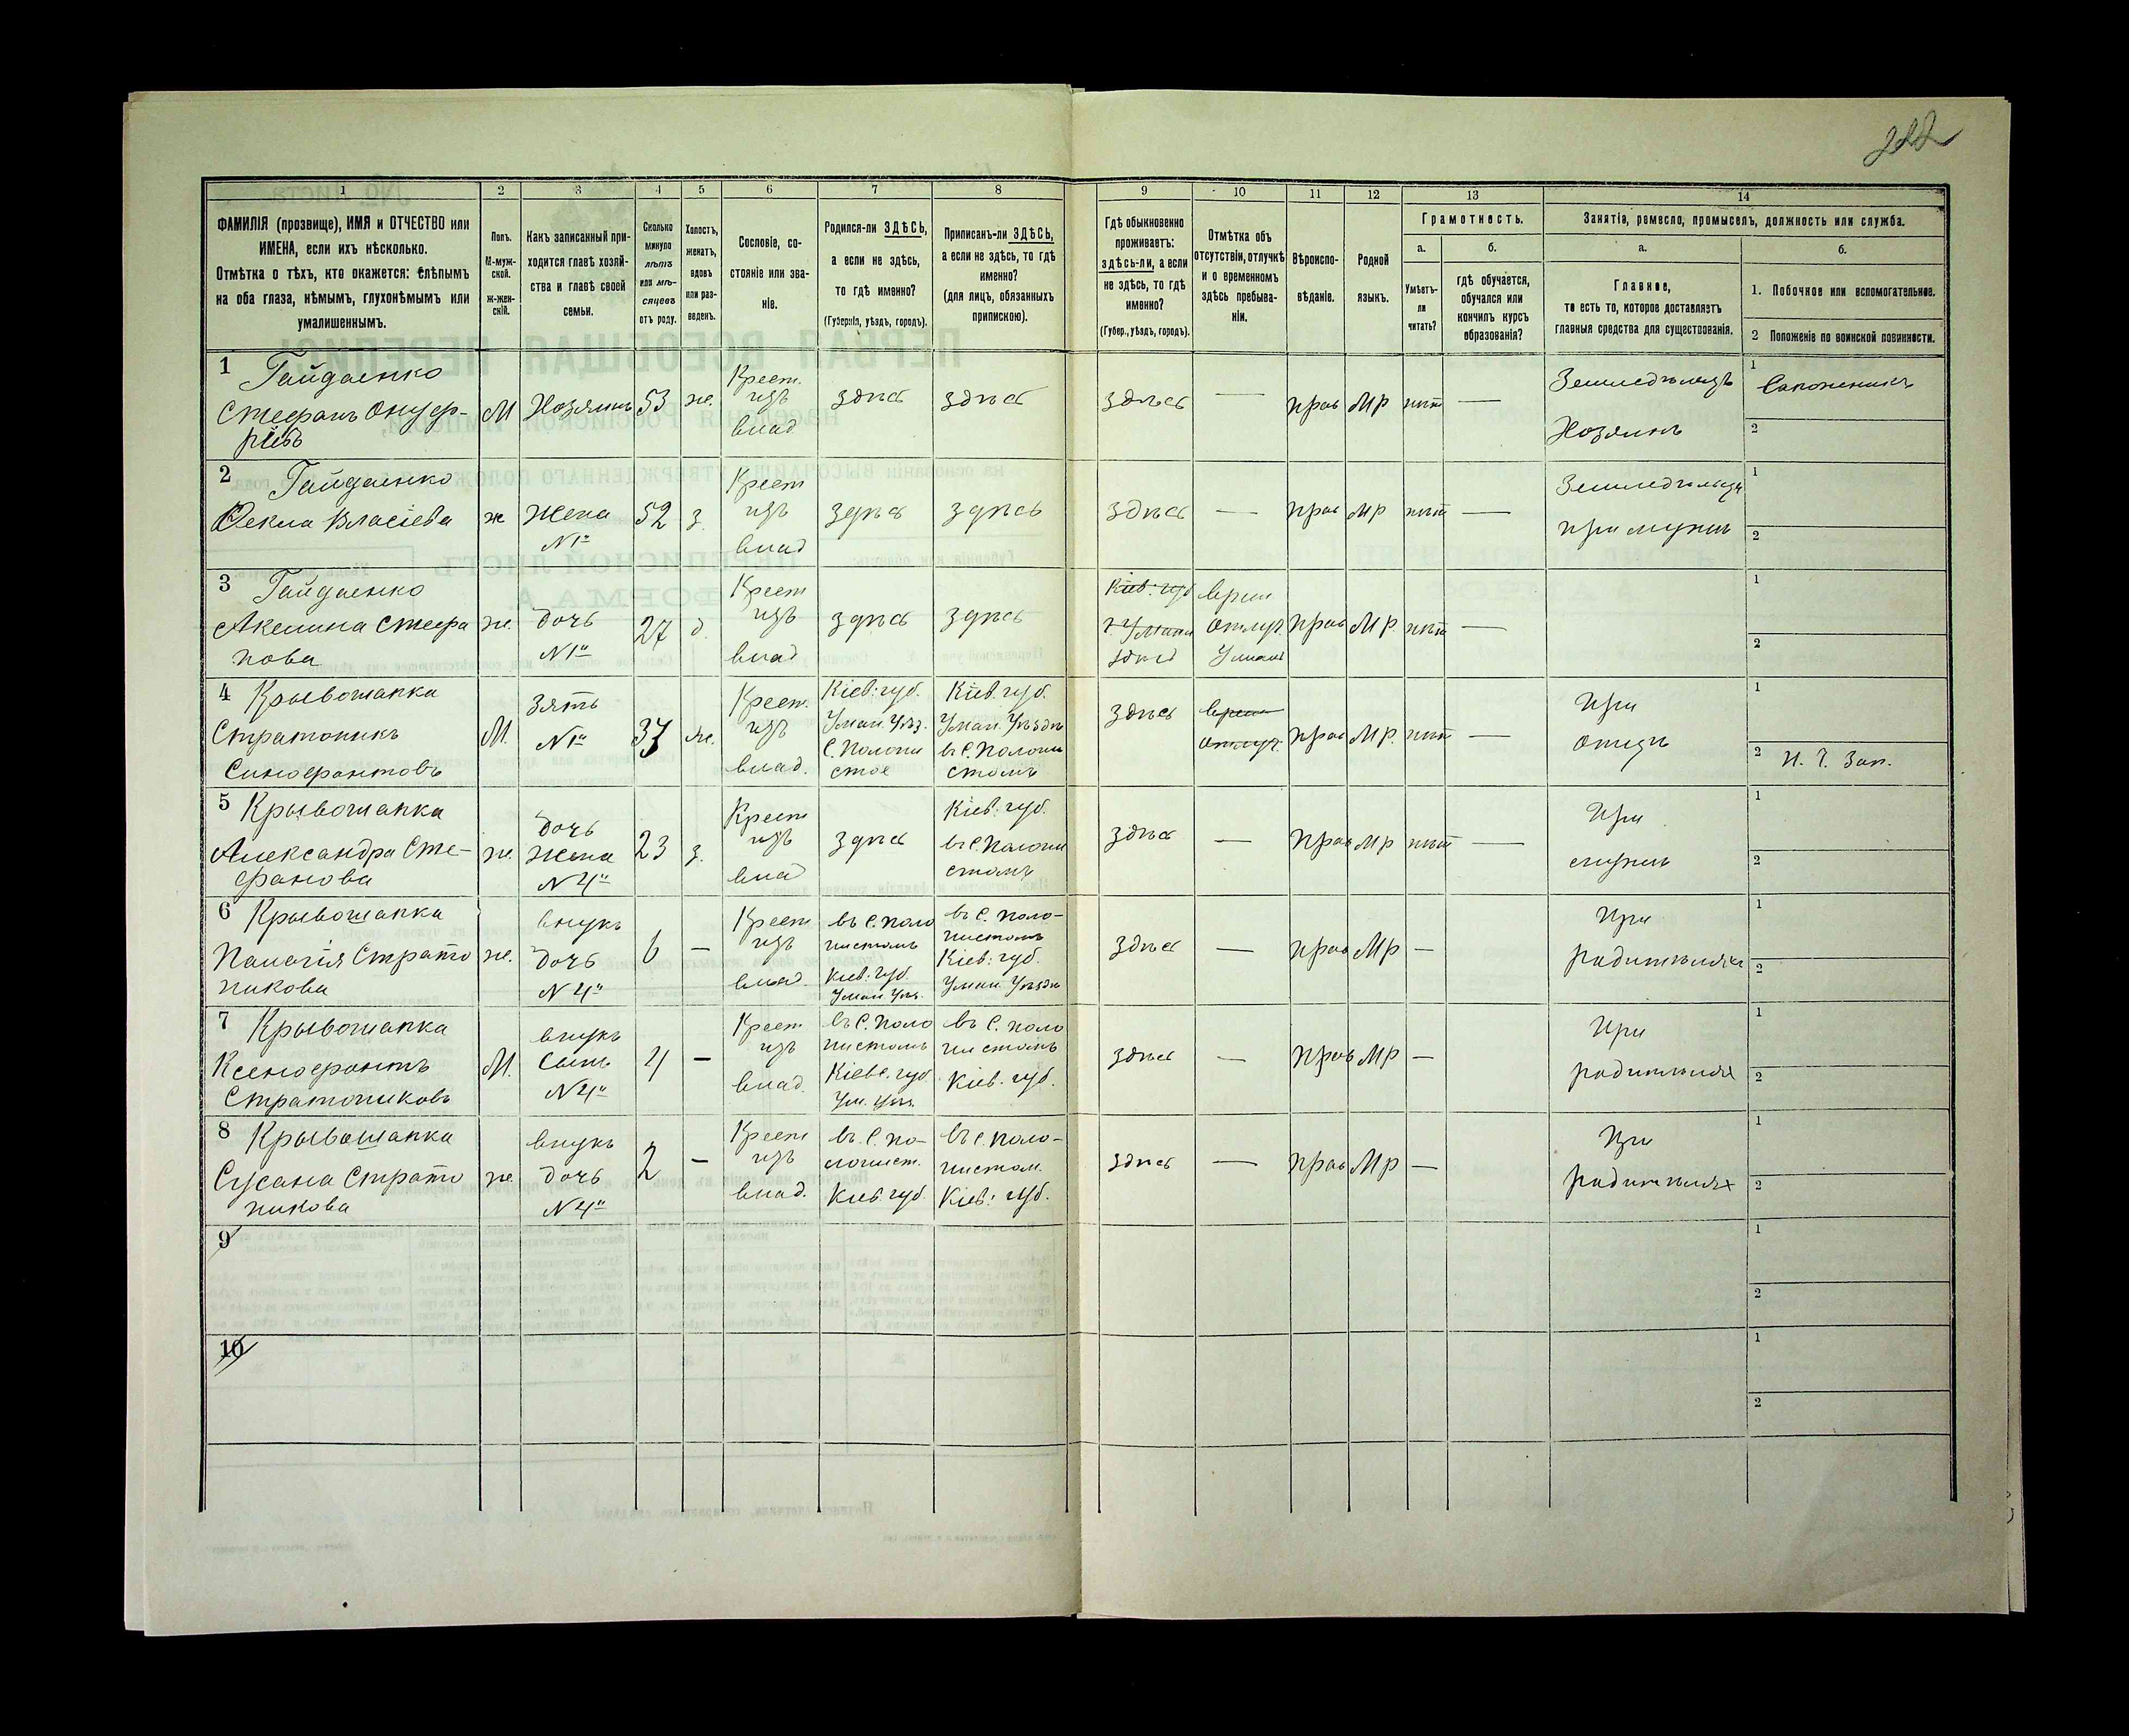 222
1
2
3
4
5
6
7
8
9
10
11
12
13
14
ФАМИЛІЯ (прозвище), ИМЯ и ОТЧЕСТВО или
ИМЕНА, если ихъ нѣсколько.
Отмѣтка о тѣхъ, кто окажется: слѣпымъ
на оба глаза, нѣмымъ, глухонѣмымъ или
умалишеннымъ.
Полъ.
М-муж-
ской.
ж-жен-
скій.
Какъ записанный при-
ходится главѣ хозяй-
ства и главѣ своей
семьи.
Сколько
минуло
лѣтъ
или мѣ-
сяцевъ
отъ роду.
Холостъ,
женатъ,
вдовъ
или раз-
веденъ.
Сословіе, со-
стояніе или зва-
ніе.
Родился-ли ЗДѢСЬ,
а если не здѣсь,
то гдѣ именно?
(Губернія, уѣздъ, городъ).
Приписанъ-ли ЗДѢСЬ,
а если не здѣсь, то гдѣ
именно?
(для лицъ, обязанныхъ
припискою).
Гдѣ обыкновенно
проживаетъ:
здѣсь-ли, а если
не здѣсь, то гдѣ
именно?
(Губер., уѣздъ, городъ).
Отмѣтка объ
отсутствіи, отлучкѣ
и о временномъ
здѣсь пребыва-
ніи.
Вѣроиспо-
вѣданіе.
Родной
языкъ.
Грамотность.
а.
Умѣетъ-
ли
читать?
б.
гдѣ обучается,
обучался или
кончилъ курсъ
образованія?
Занятіе, ремесло, промыселъ, должность или служба.
а.
Главное,
то есть то, которое доставляетъ
главныя средства для существованія.
б.
1. Побочное или вспомогательное.
2 Положеніе по воинской повинности.
1 Гайдаенко
Стефанъ Онуф-
ріевъ
М
Хозяинъ
53
же.
Крест.
изъ
влад
здѣсь
здѣсь
здѣсь
—
прав
Мр
нѣт
—
Земледѣлецъ
Хозяинъ
1 Сапожникъ
2
2 Гайдаенко
Фекла Власіева
ж
Жена
№ 1й
52
з.
Крест
изъ
влад
здѣсь
здѣсь
здѣсь
—
прав
Мр
нѣт
—
Земледѣлецъ
при мужѣ
1
2
3 Гайдаенко
Акелина Стефа
нова
же.
дочь
№ 1й
27
д.
Крест
изъ
влад
здѣсь
здѣсь
Кіев: губ
г. Умани
здѣсь
врем
отлуч.
Умань
прав
Мр.
нѣт
—
1
2
4 Крывошапка
Стратоникъ
Синофонтовъ
М.
Зять
№ 1й
37
же.
Крест.
изъ
влад.
Кіев: губ.
Уман. Уѣз.
С. Полони
стое
Кіев. губ.
Уман. Уѣздѣ
въ С. Полони
стомъ
здѣсь
врем
отлуч.
прав
Мр.
нѣт
—
При
отцѣ
1
2 Н. Ч. Зап.
5 Крывошапка
Александра Сте-
фанова
же.
дочь
Жена
№ 4й
23
з.
Крест
изъ
влад
здѣсь
Кіев: губ.
въ С. Полони
стомъ
здѣсь
—
прав
Мр
нѣт
—
При
мужѣ
1
2
6 Крывошапка
Палагія Страто
никова
же.
внукъ
дочь
№ 4й
6
—
Крест
изъ
влад.
въ С. Поло
нистомъ
Кіев. губ.
Уман. Уѣз.
въ С. Поло-
нистомъ
Кіев: губ.
Уман. Уѣздѣ
здѣсь
—
прав
Мр
—
При
родителяхъ
1
2
7 Крывошапка
Ксенофонтъ
Стратониковъ
М.
внукъ
Сынъ
№ 4й
4
—
Крест
изъ
влад.
въ С. Поло
нистомъ
Кіевс. губ
Ум. Уѣз.
въ С. Поло
нистомъ
Кіев. губ.
здѣсь
—
прав
Мр
—
При
родителях
1
2
8 Крывошапка
Сусана Страто
никова
же
внукъ
дочь
№ 4й
2
—
Крест
изъ
влад.
въ. С. По-
лонист.
Кіев губ.
въ С. Поло-
нистом.
Кіев: губ.
здѣсь
—
прав
Мр
—
При
родителях
1
2
9
1
2
10
1
2